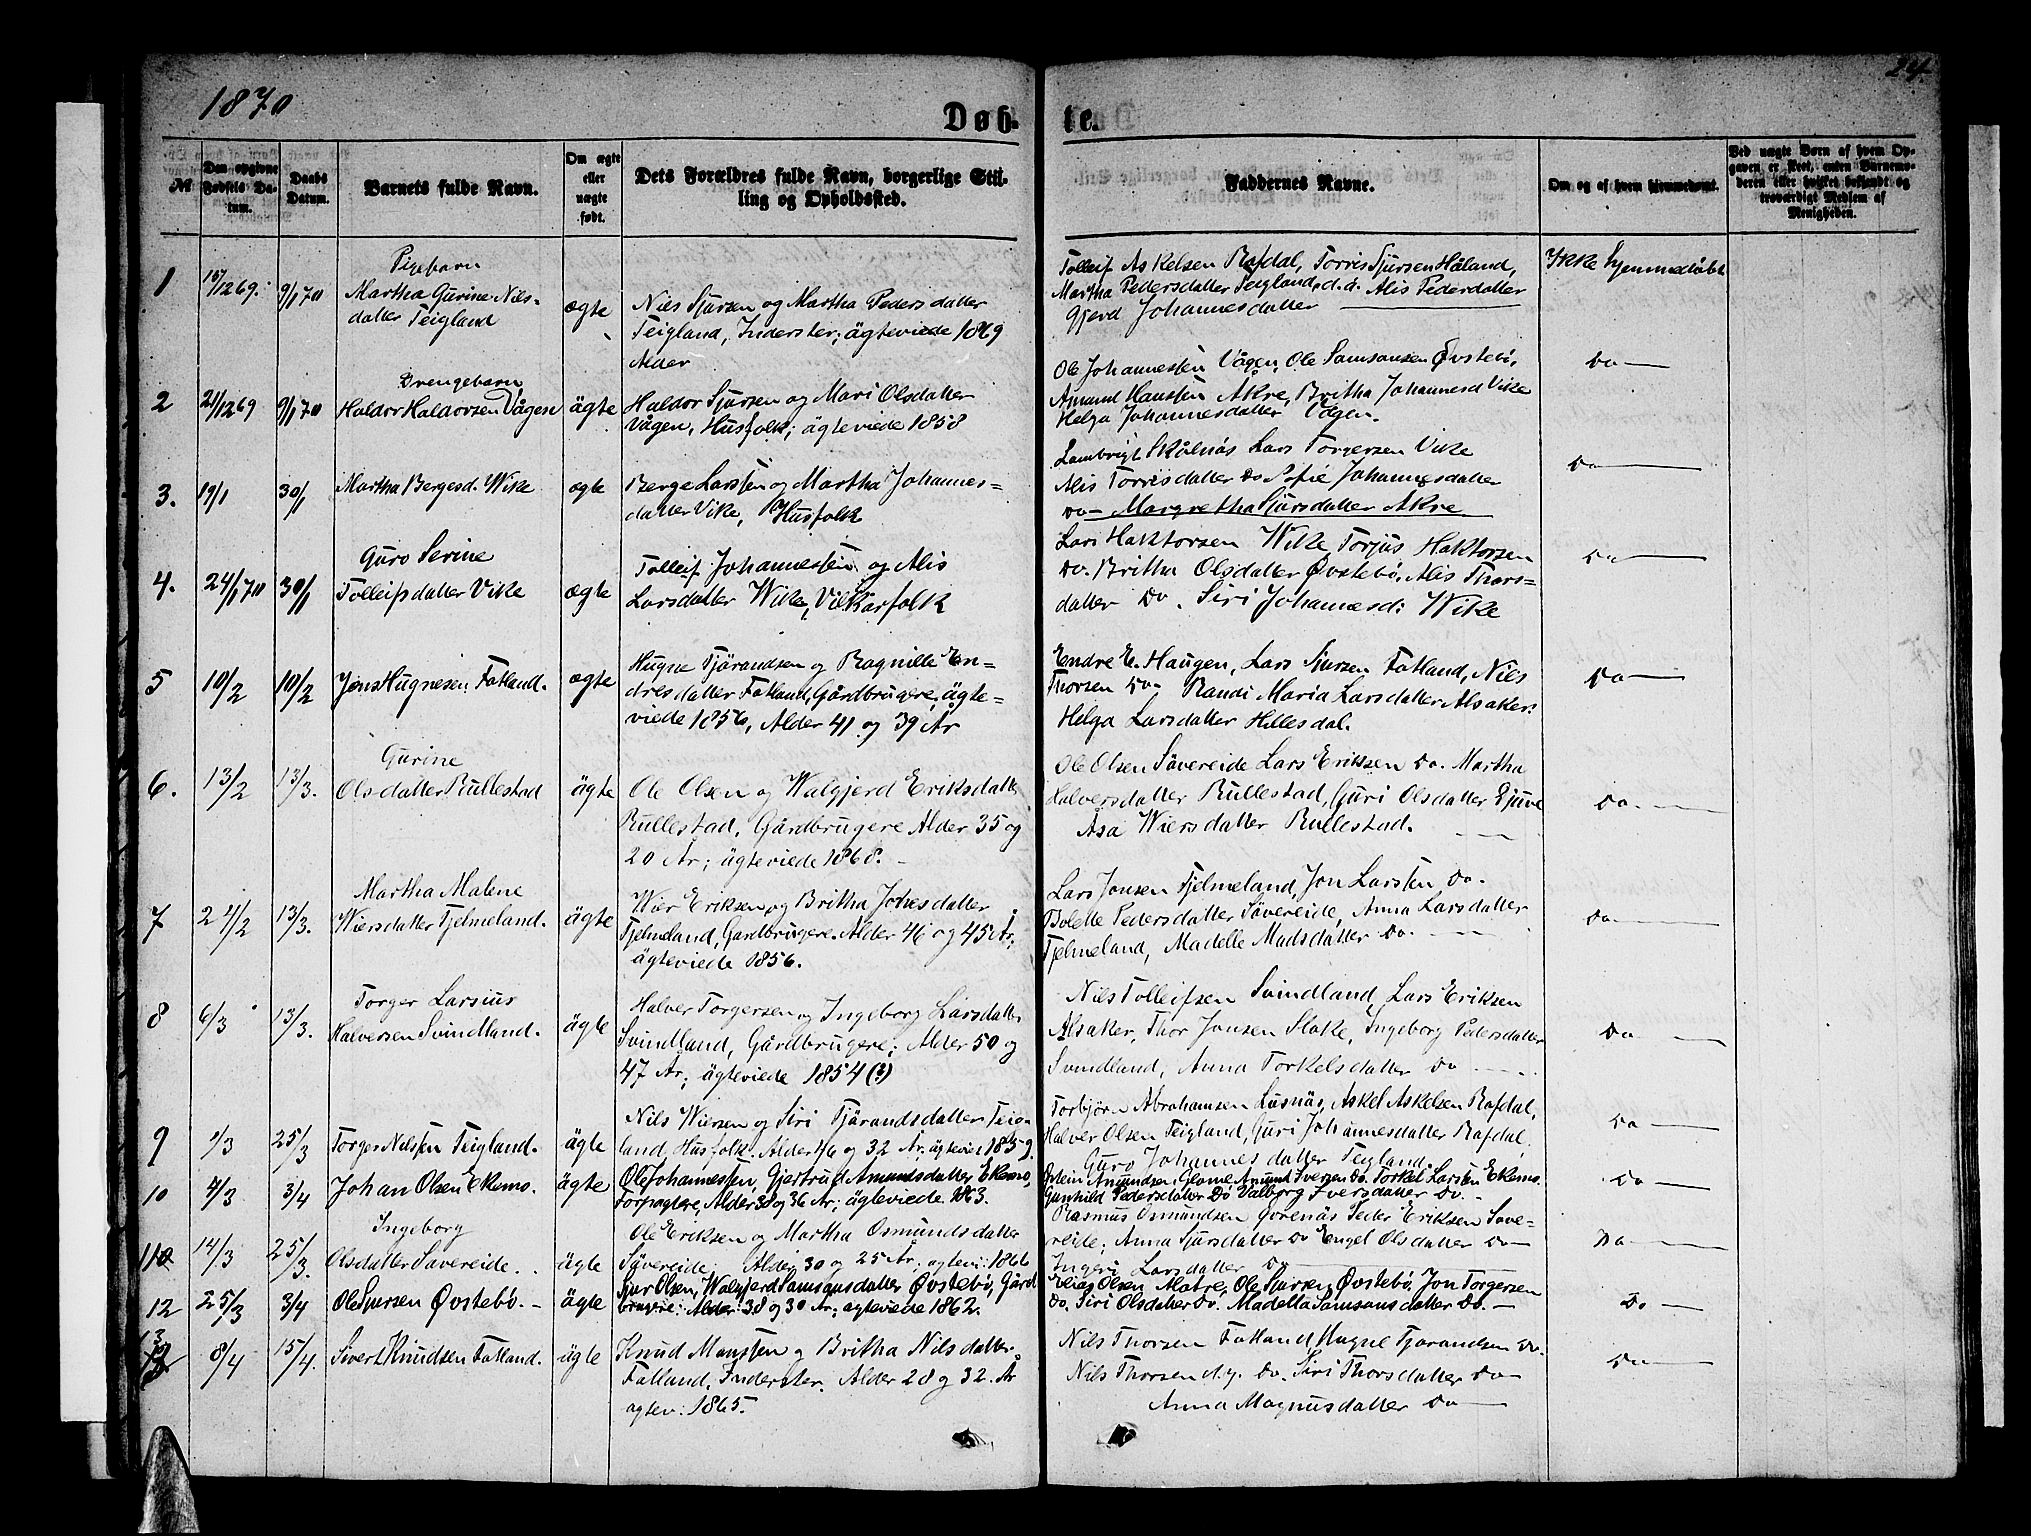 1870
24
Døb-
te.
№
Den opgivne Fødsels Datum.
Daabs Datum.
Barnets fulde Navn.
Om ægte eller uægte født.
Dets Forældres fulde Navn, borgerlige Stilling og Opholdssted.
Faddernes Navne.
Om og af hvem hjemmedøbt.
Ved uægte Børn af hvem Opgaven er skeet, enten Barnemoderen eller hvilket bekjendt og troværdigt Medlem af Menigheden.
1
15/12 69.
9/1 70
Pigebarn
Martha Gurine Nils-
datter Teigland
ægte
Niels Sjursen og Martha Pedersdatter
Teigland, Inderster; ägteviede 1869
Alder
Tolleif Askelsen Rafdal, Torris Sjursen Håland,
Martha Pedersdatter Teigland, d.ä. Alis Pederdatter
Gjerd Johannesdatter
Ikke hjemmedöbt
2
21/12 69
9/1 70
Drengebarn
Haldor Haldorsen Vågen
ägte
Haldor Sjursen og Mari Olsdatter
Vågen, Husfolk; ägteviede 1858
Ole Johannessen Vågen, Ole Samsonsen Øvstebö,
Amund Hansen Akre, Britha Johannesd Vike
Helga Johannesdatter Vågen.
Do
3.
19/1
30/1
Martha Bergesd. Wike
ægte
Berge Larsen og Martha Johannes=
datter Vike, Husfolk
Lambrigt Skålnäs Lars Torgersen Vike
Alis Torrisdatter Do Sofie Johannesdatter
Do- Margretha Sjursdatter Akre
Do
4.
24/1 70
30/1
Guro Serine
Tolleifsdatter Vike
ægte
Tolleif Johannessen og Alis
Larsdatter Wike, Vilkårfolk
Lars Haktorsen Wike, Torjus Haktorsen
Do. Britha Olsdatter Øvstebö, Alis Thors=
datter Do. Siri Johannesd: Wike
Do
5
10/2
10/2
Jens Hugnesen Fatland.
ægte
Hugne Tjärandsen og Ragnille En=
dresdatter Fatland, Gårdbrugere, ägte=
viede 1856, Alder 41 og 39 År
Endre E. Haugen, Lars Sjursen Fatland, Nils
Thorsen Do Randi Maria Larsdatter Alsaker.
Helga Larsdatter Hillesdal.
Do
6.
13/2
13/3.
Gurine
Olsdatter Rullestad
ägte
Ole Olsen og Walgjerd Eriksdatter
Rullestad, Gårdbrugere Alder 35 og
20 År; ägteviede 1868.
Ole Olsen Sävereide Lars Eriksen Do. Martha
Halversdatter Rullestad, Guri Olsdatter Ljuve
Åsa Wiersdatter Rullestad.
Do.
7
21/2
13/3.
Martha Malene
Wiersdatter Tjelmeland.
ägte
Wier Eriksen og Britha Johesdatter
Tjelmeland, Gårdbrugere. Alder 46 og 45 År;
ägteviede 1856.
Lars Jonsen Tjelmeland, Jon Larsen Do.
Bolette Pedersdatter Sävereide, Anna Larsdatter
Tjelmeland, Madelle Madsdatter Do.
Do
8
6/3
13/3.
Torger Larsius
Halversen Svindland.
ägte
Halver Torgersen og Ingeborg Larsdatter
Svindland, Gårdbrugere; Alder 50 og
47 År; ägteviede 1854 (?)
Nils Tolleifsen Svindland, Lars Eriksen
Alsaker, Thor Jonsen Stake, Ingeborg Pedersdatter
Svindland, Anna Torkelsdatter Do
Do
9
1/3
25/3
Torger Nilssen Teigland.
ägte
Nils Wiersen og Siri Tjärandsdatter Teig-
land, Husfolk. Alder 46 og 32 År, ägtevie: 1859.
Torbjörn Abrahamsen Lusnäs, Askel Askelsen Rafdal,
Halver Olsen Teigland, Guri Johannesdatter Rafdal.
Guro Johannesdatter Teigland.
Do
10
4/3
3/4
Johan Olsen Ekemo.
ägte
Ole Johannessen, Gjertrud Amundsdatter Ekemo,
Forpagtere, Alder 38 og 36 År; ägteviede 1863.
Amundsen Amund Iversen Do. Torkel Larsen Ekemo.
Gunhild Pedersdatter Do Valborg Iversdatter Do.
Do
11
14/3
25/3.
Ingeborg
Olsdatter Sävereide.
ägte
Ole Eriksen og Martha Osmundsdatter
Sävereide. Alder 30 og 25 År; ägtevi: 1866
Rasmus Osmundsen Øvrenäs Peder Eriksen Säve-
reide; Anna Sjursdatter Do Engel Olsdatter Do
Ingeri Larsdatter Do
Do
12
25/3
3/4
Ole Sjursen Øvstebö.
ägte
Sjur Olsen, Walgjerd Samsonsdatter Øvstebö, Gård
brugere: Alder: 38 og 30 År; ägteviede 1862.
Elias Olsen Matre, Ole Sjursen Øvstebö, Jon Torgersen
Do. Siri Olsdatter Do. Madella Samsonsdatter Do.
Do
13
8/4
15/4.
Sivert Knudsen Fatland.
ägte
Knud Monssen og Britha Nilsdatter
Fatland, Inderster. Alder 28 og 32. År
ägtev: 1865.
Nils Thorsen Fatland, Hugne Tjärandsen Do.
Nils Thorsen d.y. Do. Siri Thorsdatter Do
Anna Magnusdatter Do
Do